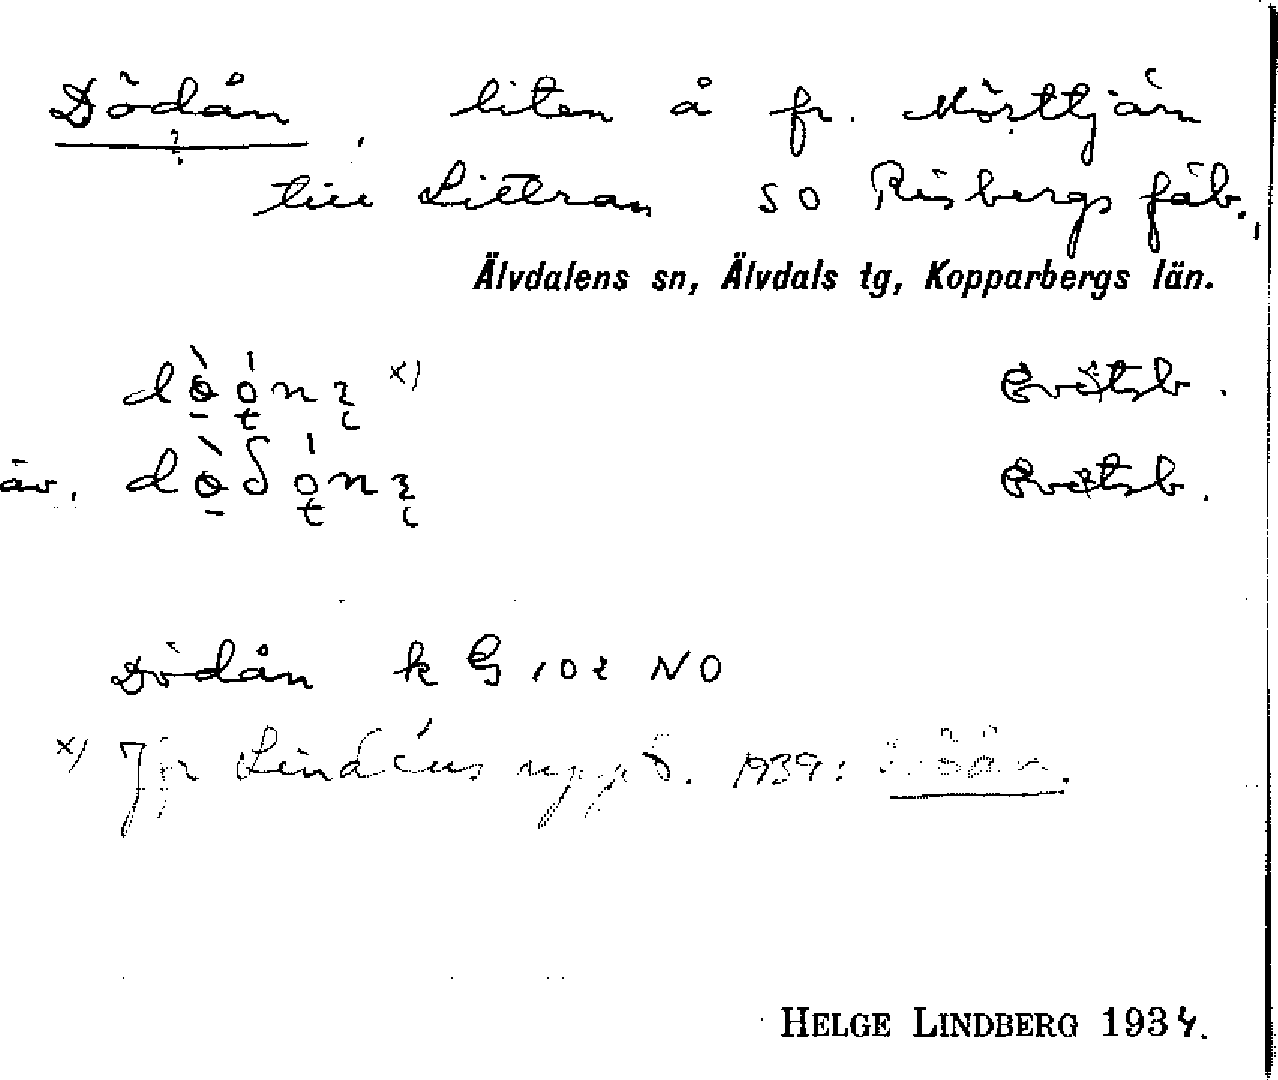 Dödån, liten å fr. Mörttjärn
till Littran SO Risbergs fäb.,
Älvdalens sn, Älvdals tg, Kopparbergs län.
x) Evertsb.
äv. Evertsb.
Dödån k G 102 NO
x) Jfr Lindéns uppt. 1939:
HELGE LINDBERG 1934.